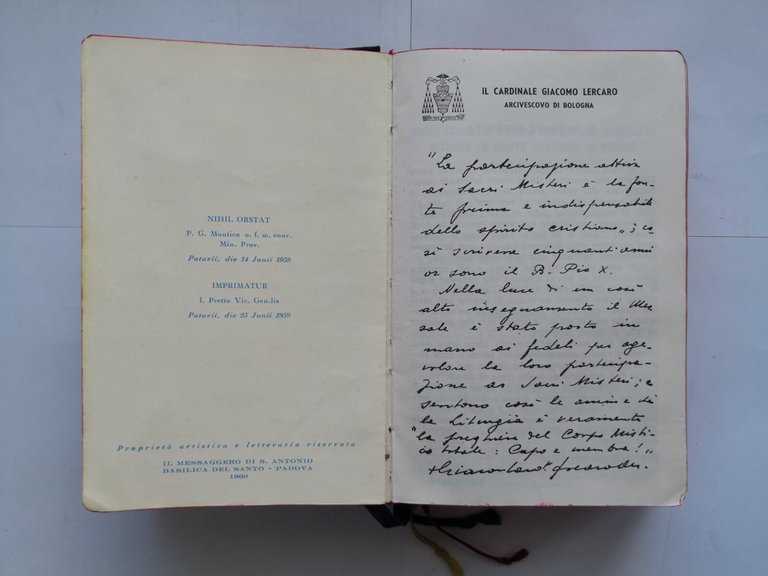 NIHIL OBSTAT
P. G. Montico o. f. m. conv.
Min. Prov.
Patavii, die 14 Junii 1959
IMPRIMATUR
I. Pretto Vic. Gen.lis
Patavii, die 25 Junii 1959
Proprietà artistica e letteraria riservata
IL MESSAGGERO DI S. ANTONIO
BASILICA DEL SANTO - PADOVA
1960
IL CARDINALE GIACOMO LERCARO
ARCIVESCOVO DI BOLOGNA
"La partecipazione attiva
ai Sacri Misteri è la fon-
te prima e indispensabile
dello spirito cristiano„; co
sì scriveva cinquant'anni
or sono il B. Pio X.
Nella luce di un così
alto insegnamento il Mes-
sale è stato posto in
mano ai fedeli per age-
volare la loro partecipa-
zione ai Sacri Misteri; e
sentono così le anime che
la Liturgia è veramente
"la preghiera del Corpo Misti-
co totale: Capo e membra!"
+ Giacomo Card.